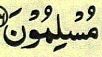 مُسْلِمُوْنَ